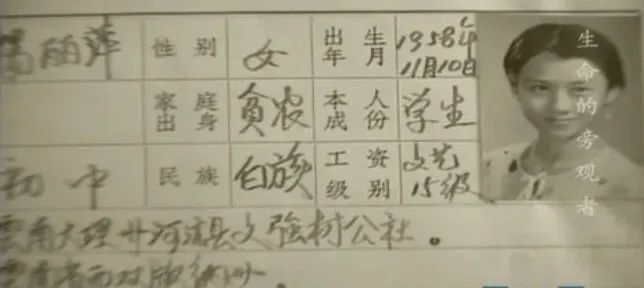 丽萍 性别 女 出生年月 1958年11月10日
家庭出身 贫农 本人成份 学生
初中 民族 白族 工资级别 文艺15级
南大理州 县 树公社。
南省西双版纳州.
生命的旁观者